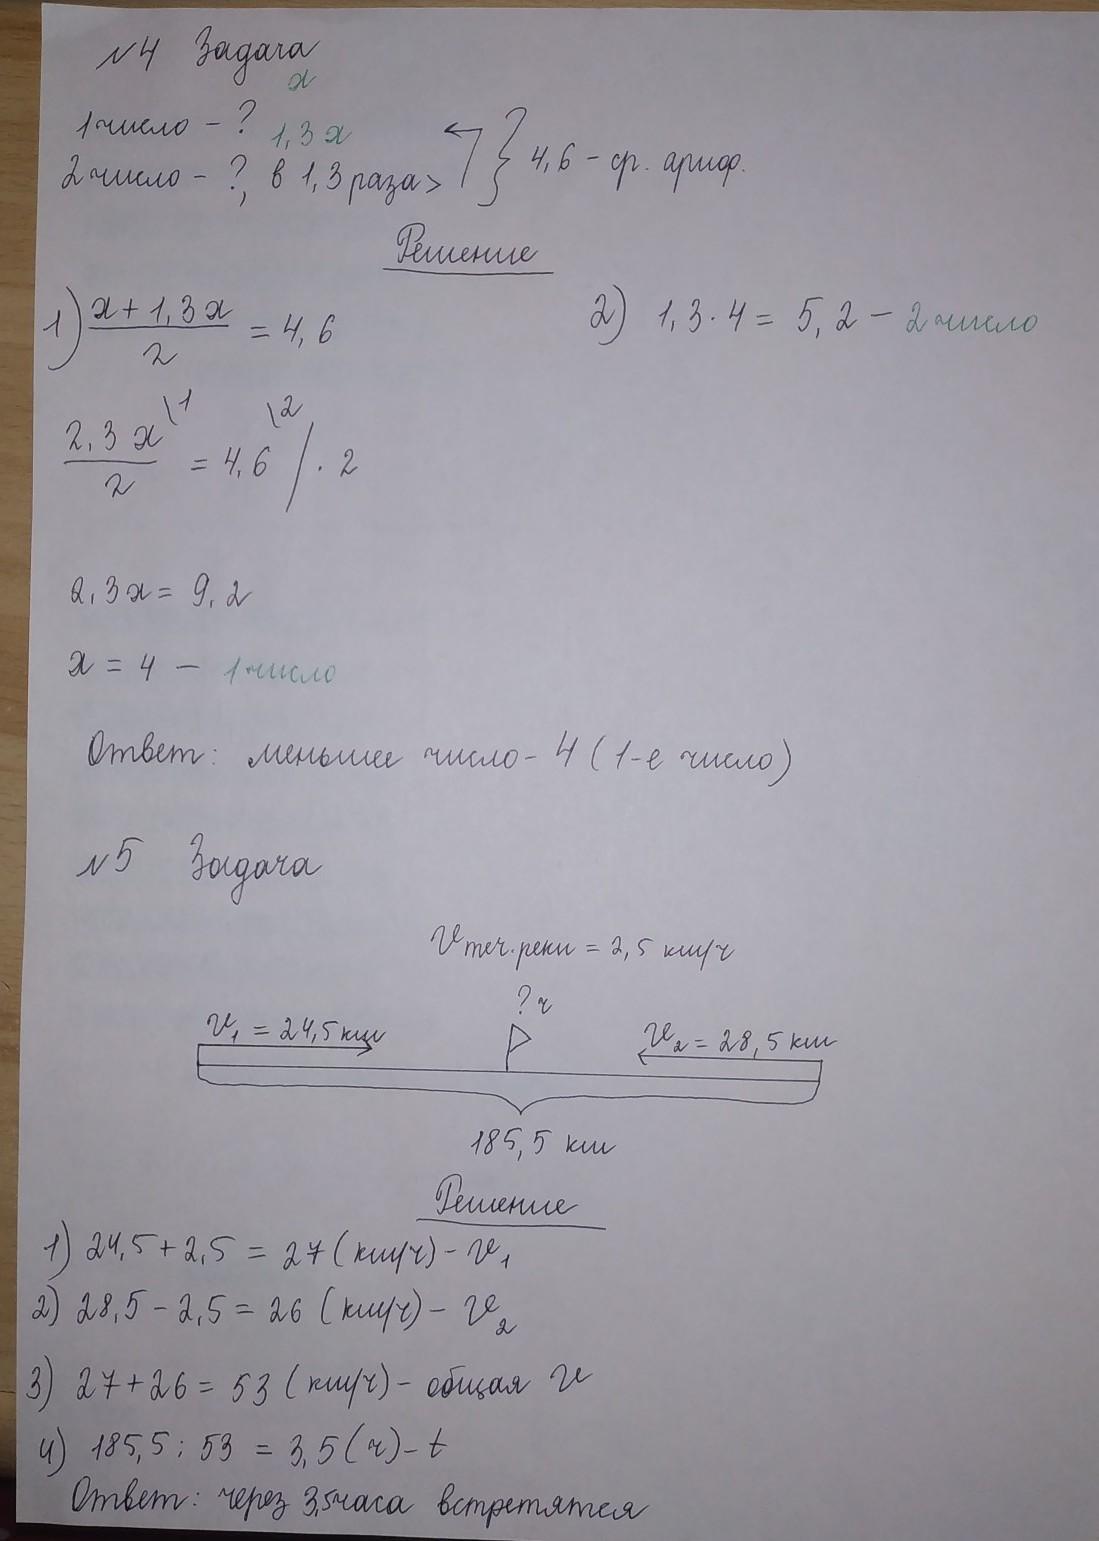 №4 Задача
x
1 число - ?
1,3x
2 число - ?, в 1,3 раза > } 4,6 - ср. ариф.
Решение
1) (x + 1,3x)/2 = 4,6
2) 1,3 · 4 = 5,2 - 2 число
2,3x\1/2 = 4,6\2 / · 2
2,3x = 9,2
x = 4 - 1 число
Ответ: меньшее число - 4 (1-е число)
№5 Задача
v теч. реки = 2,5 км/ч
? ч
v₁ = 24,5 км
v₂ = 28,5 км
185,5 км
Решение
1) 24,5 + 2,5 = 27 (км/ч) - v₁
2) 28,5 - 2,5 = 26 (км/ч) - v₂
3) 27 + 26 = 53 (км/ч) - общая v
4) 185,5 : 53 = 3,5 (ч) - t
Ответ: через 3,5 часа встретятся